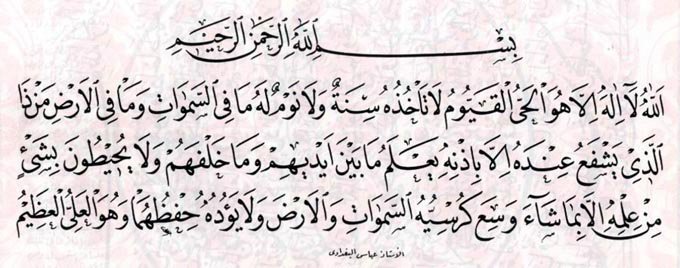 بِسْمِ اللهِ الرَّحْمٰنِ الرَّحِيْمِ
اَللهُ لَآ اِلٰهَ اِلَّا هُوَ الْحَيُّ الْقَيُّوْمُ لَا تَأْخُذُهُ سِنَةٌ وَلَا نَوْمٌ لَهُ مَا فِي السَّمٰوَاتِ وَمَا فِي الْاَرْضِ مَنْ ذَا
الَّذِيْ يَشْفَعُ عِنْدَهُ اِلَّا بِاِذْنِهِ يَعْلَمُ مَا بَيْنَ اَيْدِيْهِمْ وَمَا خَلْفَهُمْ وَلَا يُحِيْطُوْنَ بِشَيْءٍ
مِنْ عِلْمِهِ اِلَّا بِمَا شَآءَ وَسِعَ كُرْسِيُّهُ السَّمٰوَاتِ وَالْاَرْضَ وَلَا يَؤُدُهُ حِفْظُهُمَا وَهُوَ الْعَلِيُّ الْعَظِيْمُ
الأستاذ عباس البغدادي